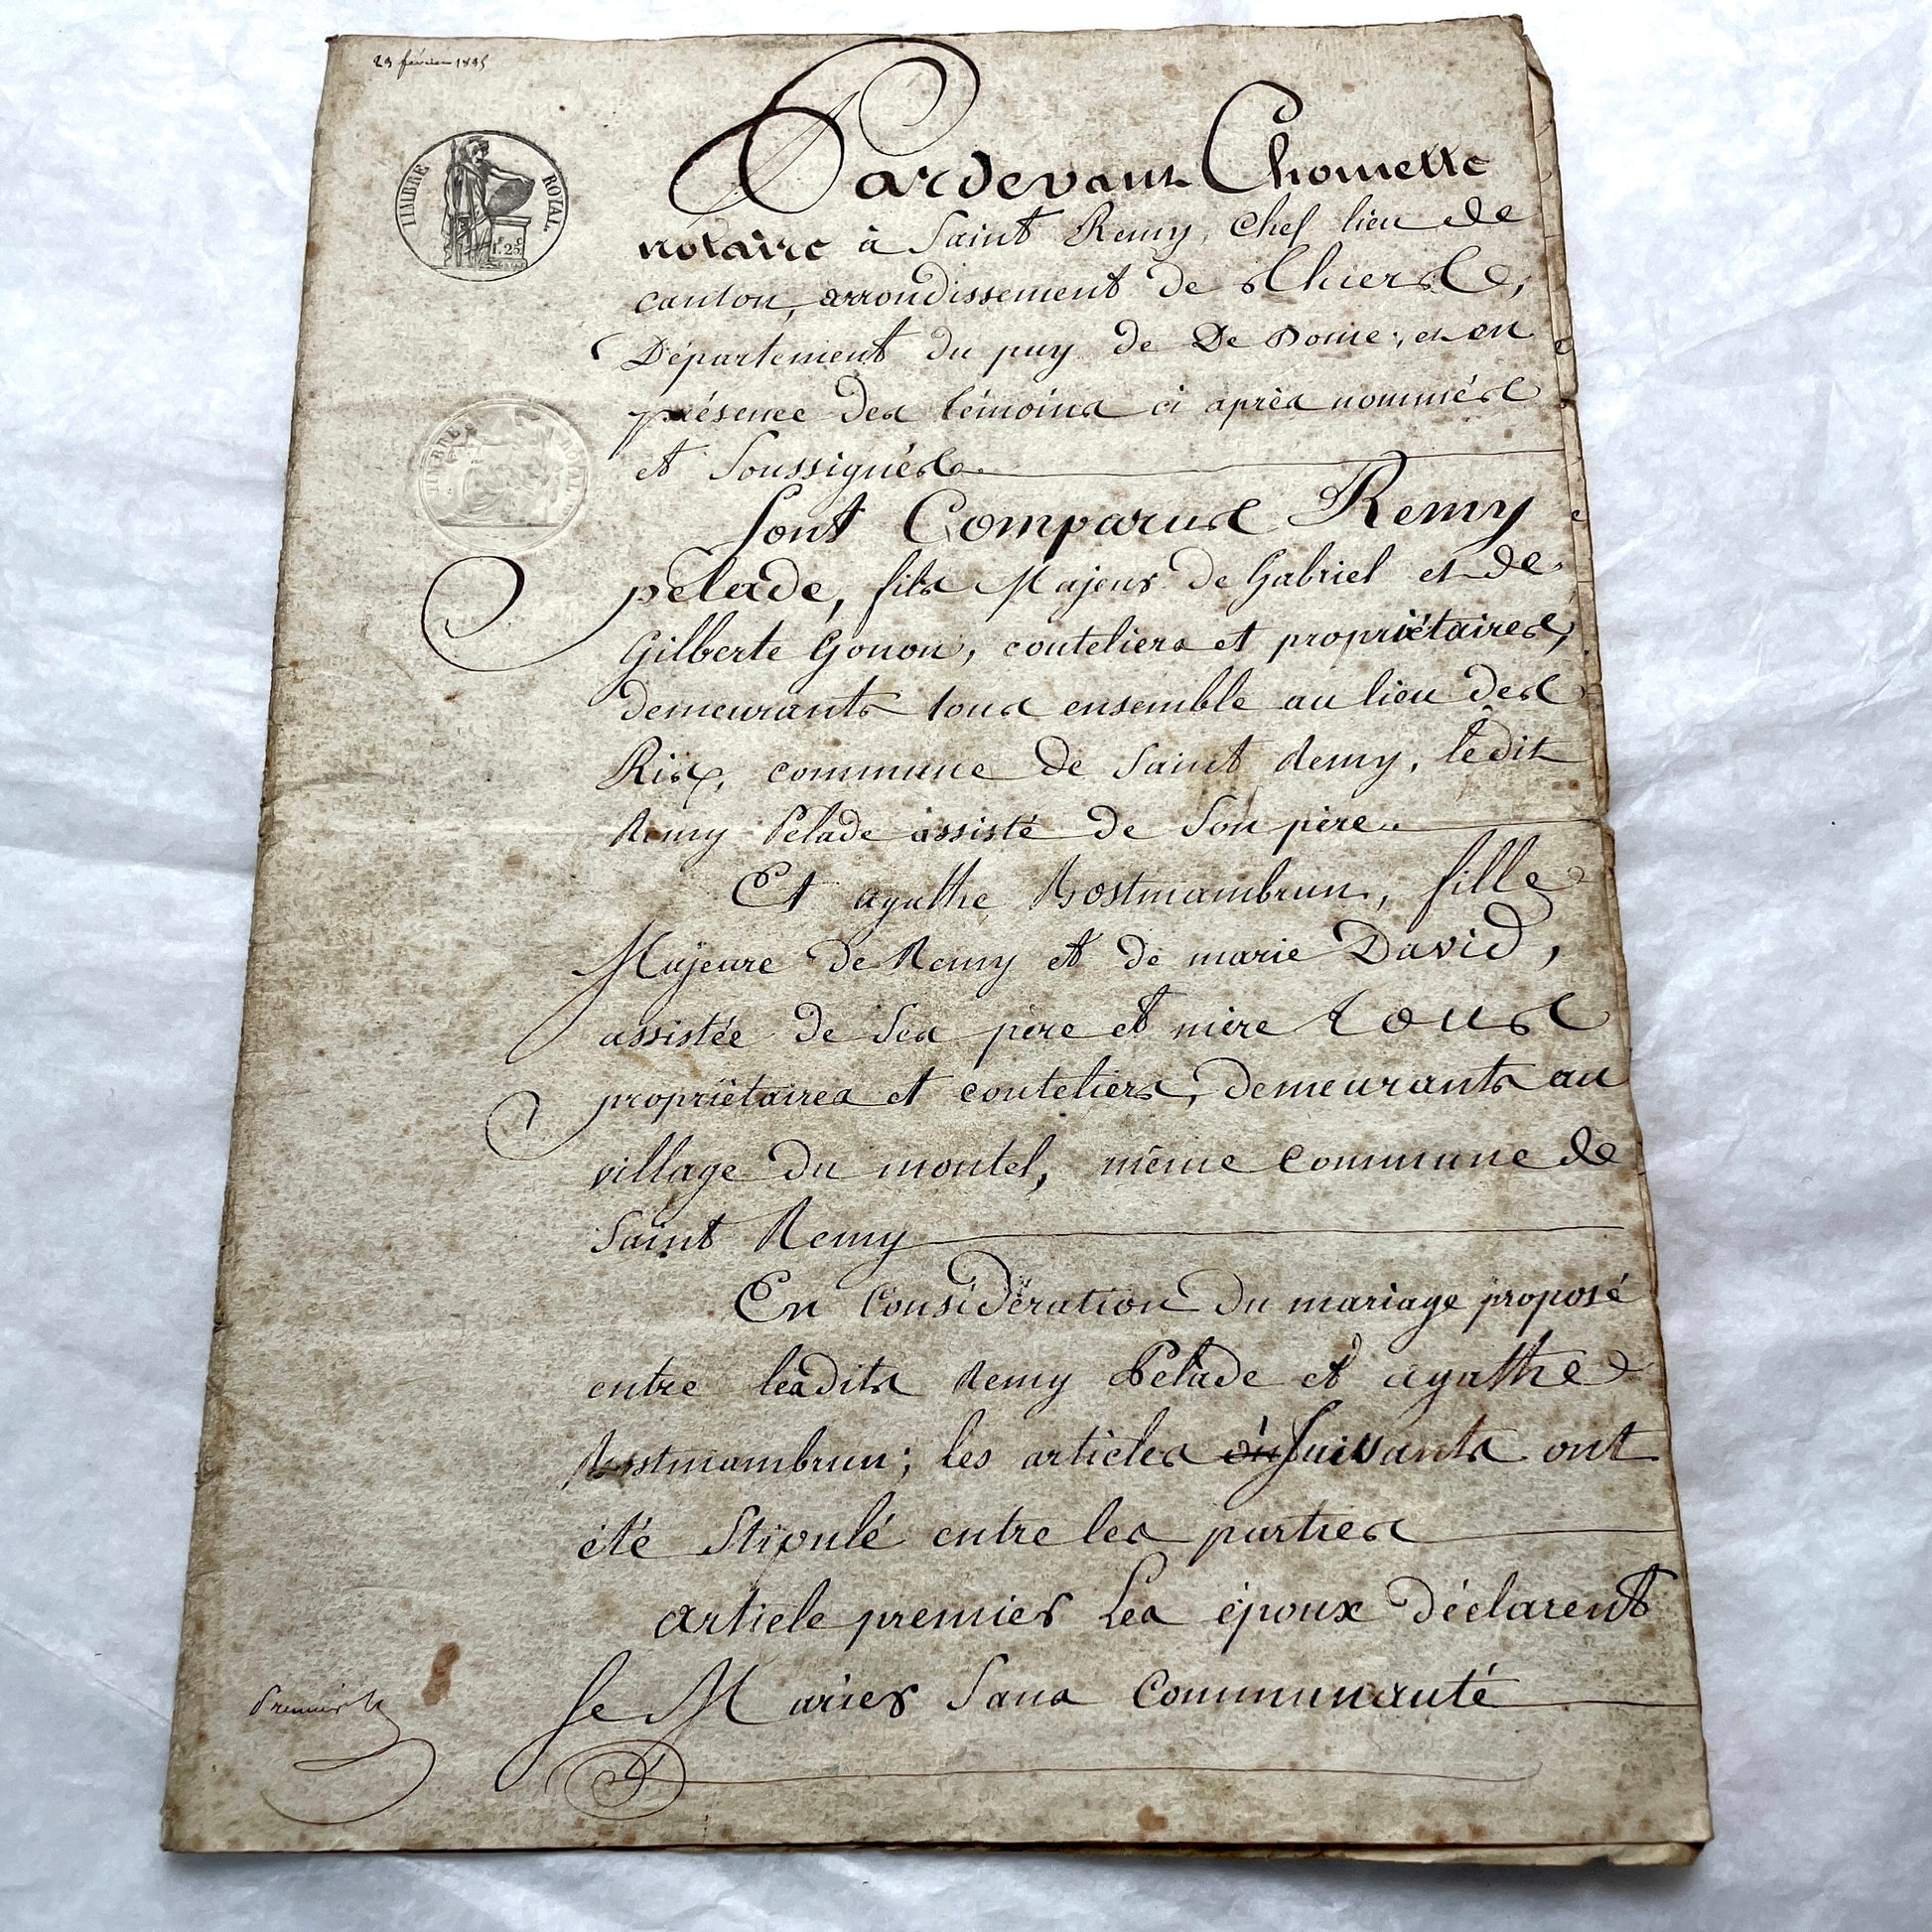 23 février 1835
TIMBRE ROYAL
1F. 25C
Pardevant Chomette
notaire à Saint Remy, Chef lieu de
canton, arrondissement de thiers,
Département du puy de De Dome; et en
présence des témoins ci après nommés
et Soussignés.
Sont Comparus Remy
pelade, fils Majeur de Gabriel et de
Gilberte Gonon, couteliers et propriétaires,
demeurants tous ensemble au lieu des
Rix, commune de Saint Remy, ledit
Remy Pelade assisté de Son père.
Et agathe Bostmambrun, fille
Majeure de Remy et de marie David,
assistée de Ses père et mère tous
propriétaires et couteliers, demeurants au
village du montel, même Commune de
Saint Remy
En Considération du mariage proposé
entre lesdits Remy Pelade et agathe
Bostmambrun; les articles Suivants ont
été Stipulé entre les parties
article premier Les époux déclarent
Se Marier Sans Communauté
Premier